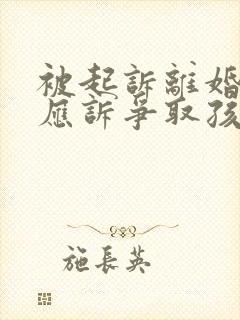 被起訴離婚
應訴爭取孩
施長英